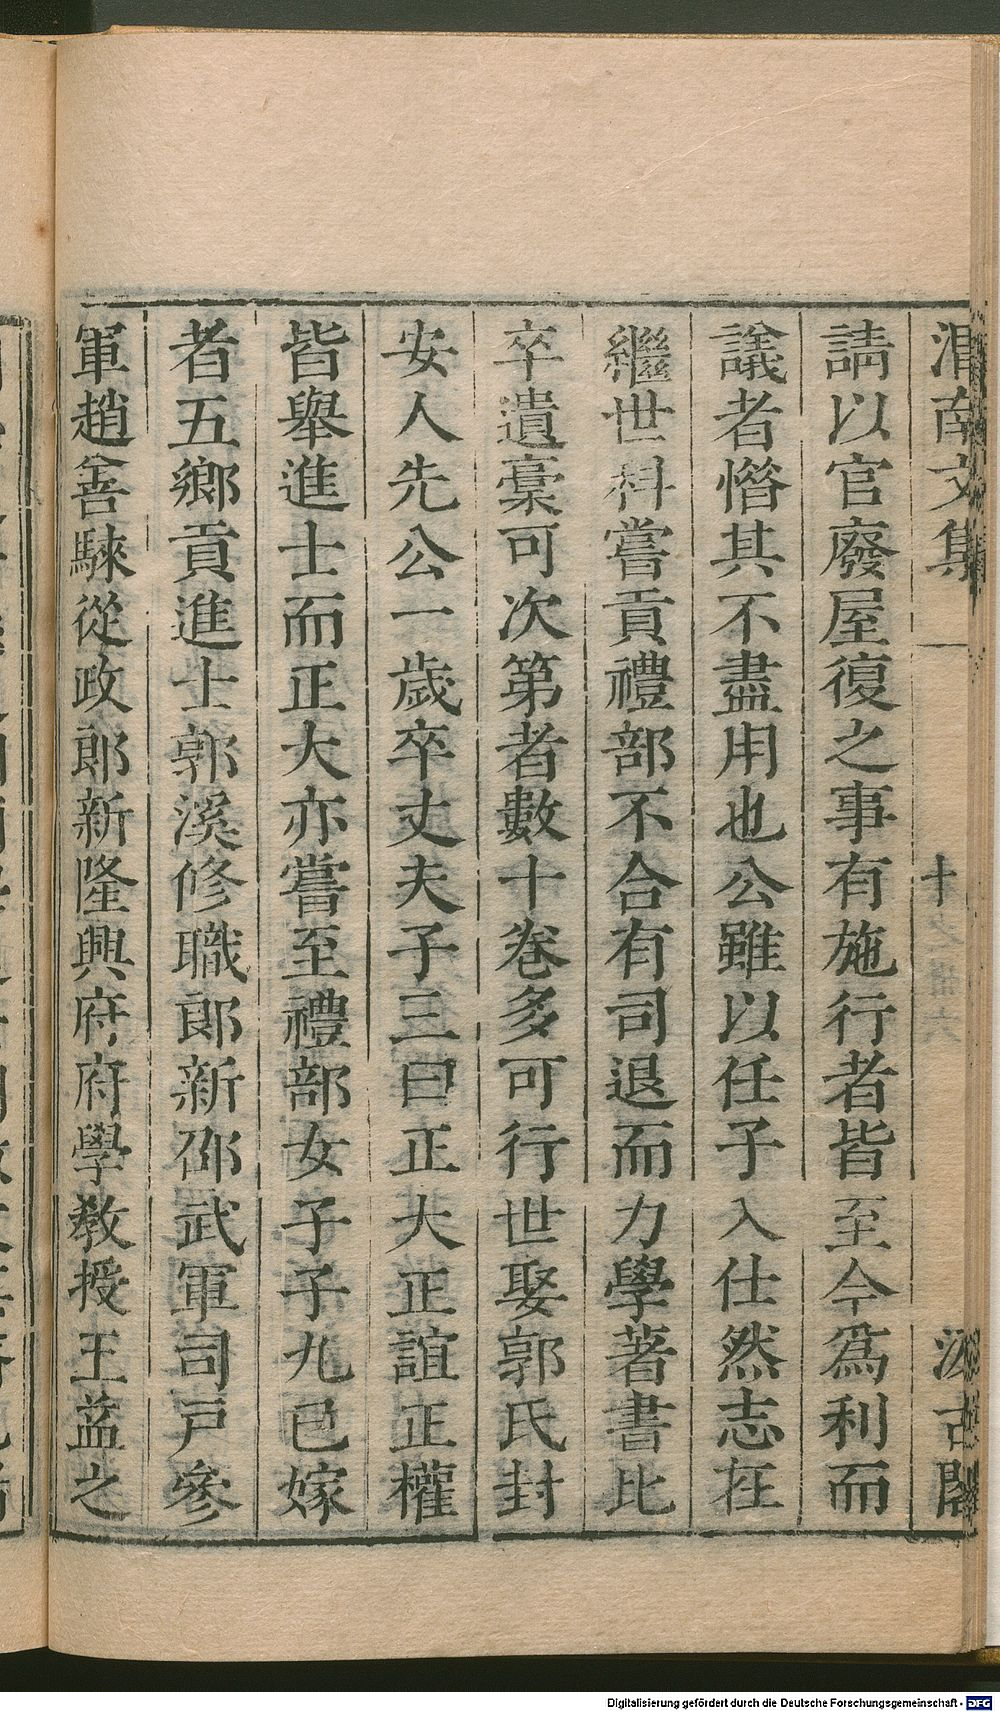 渭南文集 十 汲古閣
請以官廢屋復之事有施行者皆至今爲利而
議者惜其不盡用也公雖以任子入仕然志在
繼世科嘗貢禮部不合有司退而力學著書比
卒遺稾可次第者數十卷多可行世娶郭氏封
安人先公一歲卒丈夫子三曰正大正誼正權
皆舉進士而正大亦嘗至禮部女子子九已嫁
者五鄉貢進士郭溪修職郎新邵武軍司戶參
軍趙善騋從政郎新隆興府府學教授王益之
Digitalisierung gefördert durch die Deutsche Forschungsgemeinschaft - DFG